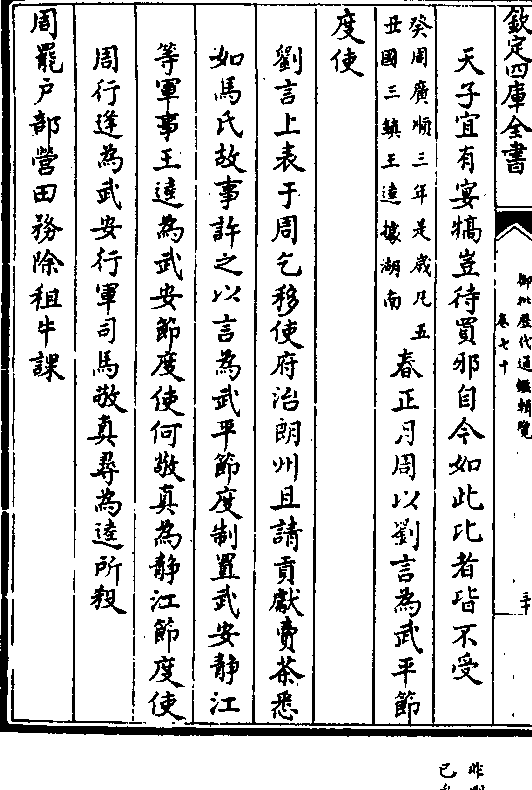 欽定四庫全書
御批歷代通鑑輯覽
卷七十
三十
天子宜有宴犒豈待買邪自今如此比者皆不受
癸周廣順三年是歲凡五
丑國三鎮王逵據湖南
春正月周以劉言為武平節
度使
劉言上表于周乞移使府治朗州且請貢獻賣茶悉
如馬氏故事許之以言為武平節度制置武安靜江
等軍事王逵為武安節度使何敬真為靜江節度使
周行逢為武安行軍司馬敬真尋為逵所殺
周罷户部營田務除租牛課